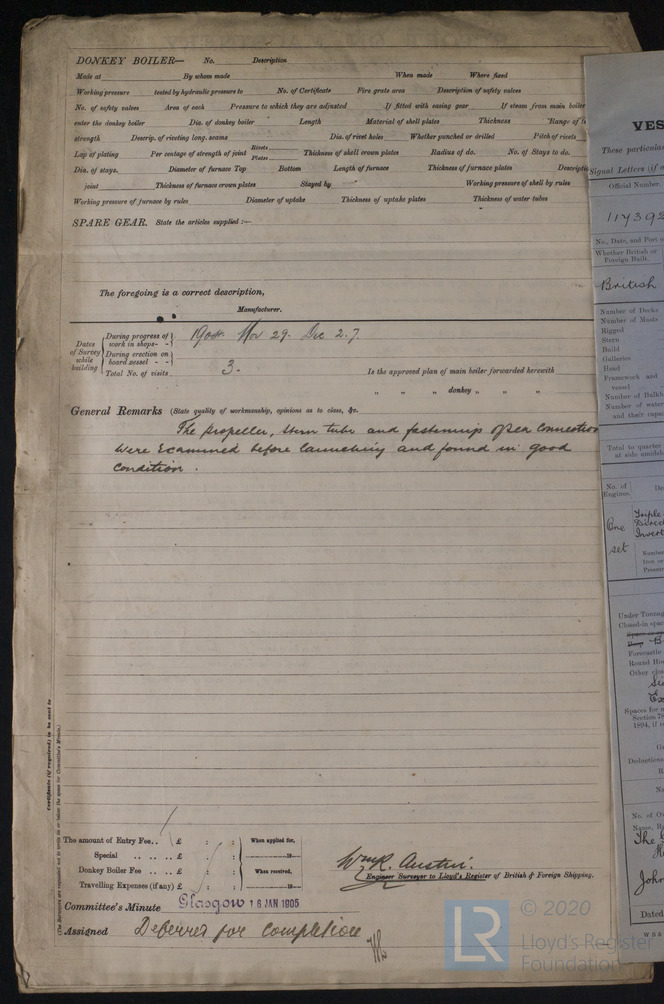 DONKEY BOILER— No. Description
Made at By whom made When made Where fixed
Working pressure tested by hydraulic pressure to No. of Certificate Fire grate area Description of safety valves
No. of safety valves Area of each Pressure to which they are adjusted If fitted with easing gear If steam from main boiler
enter the donkey boiler Dia. of donkey boiler Length Material of shell plates Thickness Range of
strength Descrip. of riveting long. seams Dia. of rivet holes Whether punched or drilled Pitch of rivets
Lap of plating Per centage of strength of joint Rivets Plates Thickness of shell crown plates Radius of do. No. of Stays to do.
Dia. of stays. Diameter of furnace Top Bottom Length of furnace Thickness of furnace plates Descripti
joint Thickness of furnace crown plates Stayed by Working pressure of shell by rules
Working pressure of furnace by rules Diameter of uptake Thickness of uptake plates Thickness of water tubes
SPARE GEAR. State the articles supplied:—
The foregoing is a correct description,
Manufacturer.
Dates of Survey while building
During progress of work in shops - - 1904. Nov 29. Dec 2. 7.
During erection on board vessel - -
Total No. of visits 3.
Is the approved plan of main boiler forwarded herewith
" " donkey " " "
General Remarks (State quality of workmanship, opinions as to class, &c.
The propeller, stern tube and fastenings of sea connection
were examined before launching and found in good
condition.
Certificate (if required) to be sent to
(The Surveyors are requested not to write on or below the space for Committee's Minute.)
The amount of Entry Fee.. £ : : When applied for,
Special .. .. .. £ : : 19
Donkey Boiler Fee .. .. £ : : When received,
Travelling Expenses (if any) £ : : 19
Wm R. Austin.
Engineer Surveyor to Lloyd's Register of British & Foreign Shipping.
Committee's Minute Glasgow 16 JAN 1905
Assigned Deferred for completion
VES
These particulars
Signal Letters (if
Official Number.
117392
No., Date, and Port
Whether British or Foreign Built.
British
Number of Decks
Number of Masts
Rigged
Stern
Build
Galleries
Head
Framework and
vessel
Number of Bulkh
Number of water
and their capa
Total to quarter
at side amidsh
No. of Engines.
One
set
Triple
Direc
Invert
Under Tonnag
Closed-in spac
Forecastle
Round Ho
Other clos
Spaces for
Section 78
1894, if
Deductions
No. of Ow
Name, R
The
John
Dated
© 2020
LR
Lloyd's Register
Foundation